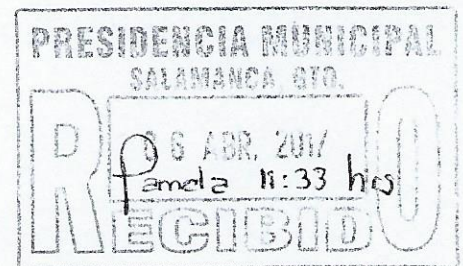 PRESIDENCIA MUNICIPAL
SALAMANCA GTO.
ABR. 2017
Pamela 11:33 hrs
RECIBIDO